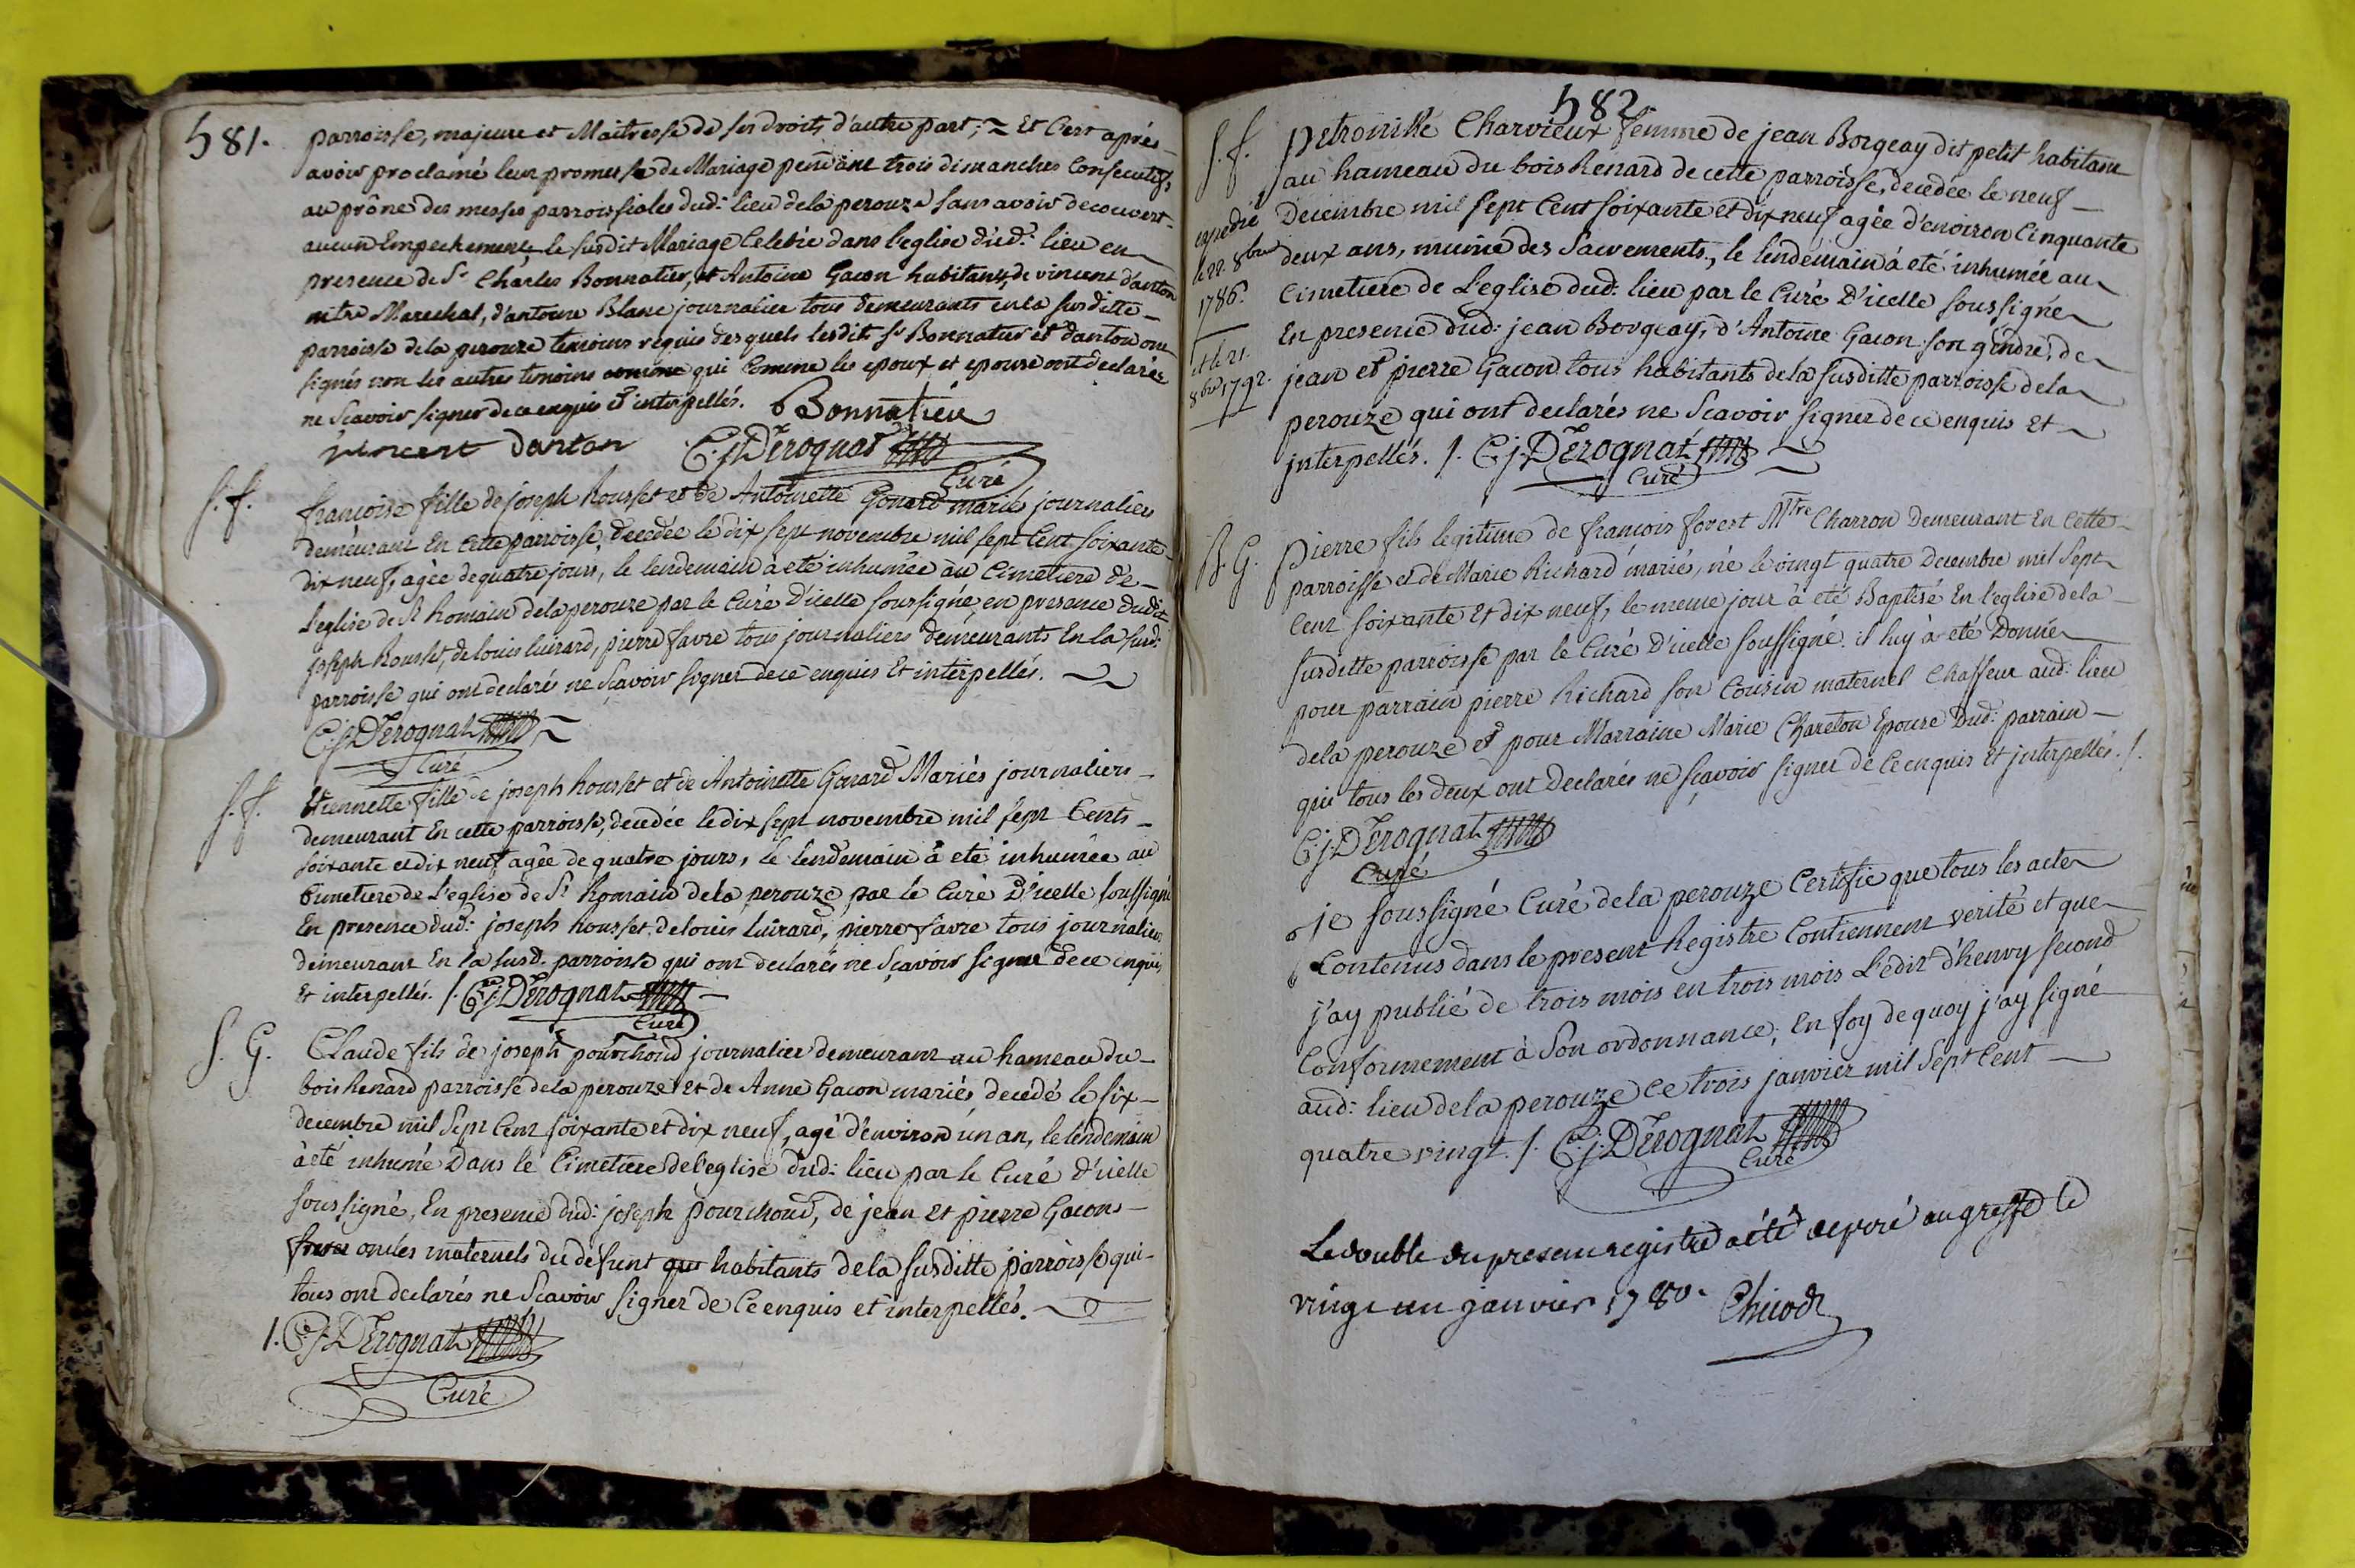 581.
parroisse, majeure et Maitresse de ses droits d'autre part; ~ Et C'est aprés
avoir proclamé leur promesse de Mariage pendant trois dimanches Consecutifs
au prône des messes parroissiales dud: lieu dela perouze sans avoir decouvert
aucun Empechement, le susdit Mariage Celebré dans l'eglise dud: lieu en
presence de Sr Charles Bonnatier, et Antoine Gacon habitants, de vincent d'anton
mtre Marechal, d'antoine Blanc journalier tous demeurants en la susditte
parroisse dela perouze temoins requis desquels lesdits Sr Bonnatier et danton ont
signés non les autres temoins comme qui Comme les epoux et epouse ont declarés
ne Scavoir signer de ce enquis et interpellés. Bonnatier
vincent danton C:j:Derognat
Curé
S. f.
françoise fille de joseph Rousset et de Antoinette Gonard mariés journaliers
demeurant En Cette parroisse, decedée le dix sept novembre mil sept Cent soixante
dix neuf, agée de quatre jours, le lendemain à eté inhumée au Cimetiere de
L'eglise de St Romain dela perouze par le Curé D'icelle soussigné, en presence dudit
joseph Rousset, de louis luirard, pierre favre tous journaliers demeurants En la susd:
parroisse qui ont declarés ne Scavoir signer de ce enquis Et interpellés.
C:j:Derognat
Curé
S. f.
Etiennette fille de joseph Rousset et de Antoinette Gonard Mariés journaliers
demeurant En cette parroisse, decedée le dix sept novembre mil sept Cents
soixante et dix neuf agée de quatre jours, le lendemain à eté inhumée au
Cimetiere de L'eglise de St Romain dela perouze par le Curé D'icelle soussigné
En presence dud: joseph Rousset, de louis luirard, pierre favre tous journaliers
demeurant En la susd. parroisse qui ont declarés ne Sçavoir signer de ce enquis
Et interpellés. /. C:j:Derognat
Curé
S. G.
Claude fils de joseph pourchoud journalier demeurant au hameau du
bois Renard parroisse dela perouze et de Anne Gacon mariés decedé le six
decembre mil Sept Cent soixante et dix neuf, agé d'environ un an, le lendemain
à eté inhumé Dans le Cimetiere de l'eglise dud: lieu par le Curé d'icelle
soussigné, En presence dud: joseph pourchoud, de jean et pierre Gacons
freres oncles maternels du defunt qui habitants dela susditte parroisse qui
tous ont declarés ne Scavoir signer de Ce enquis et interpellés.
/. C:j:Derognat
Curé
582
S. f.
petronille Charvieux femme de jean Borgeay dit petit habitant
au hameau du bois Renard de cette parroisse, decedée le neuf
Decembre mil sept Cent soixante et dix neuf agée d'environ Cinquante
deux ans, munie des Sacrements, le lendemain à eté inhumée au
Cimetiere de L'eglise dud: lieu par le Curé D'icelle soussigné
En presence dud: jean Borgeay, d'Antoine Gacon son gendre, de
jean et pierre Gacon tous habitants dela susditte parroisse dela
perouze qui ont declarés ne Scavoir signer de ce enquis et
interpellés. /. C:j:Derognat
Curé
expedié
le 22. 8bre
1786.
et le 21.
8bre 1792.
B. G.
Pierre fils legitime de francois forest Mtre Charron Demeurant En Cette
parroisse et de Marie Richard marié, né le vingt quatre Decembre mil Sept
Cent soixante Et dix neuf, le meme jour à eté Baptisé En l'eglise dela
susditte parroisse par le Curé D'icelle soussigné. il luy à eté Donné
pour parrain pierre Richard son Cousin maternel Chasseur aud: lieu
dela perouze et pour Marraine Marie Chareton Epouse Dud: parrain
qui tous les deux ont Declarés ne sçavoir signer de Ce enquis Et interpellés. /.
C:j:Derognat
Curé
je soussigné Curé dela perouze Certifie que tous les actes
Contenus dans le present Registre Contiennent verité et que
j'ay publié de trois mois en trois mois L'edit d'henry second
Conformement à Son ordonnance; En foy de quoy j'ay signé
aud: lieu dela perouze Ce trois janvier mil Sept Cent
quatre vingt. /. C:j:Derognat
Curé
Le double du present registre a été deposé au greffe le
vingt un janvier 1780.